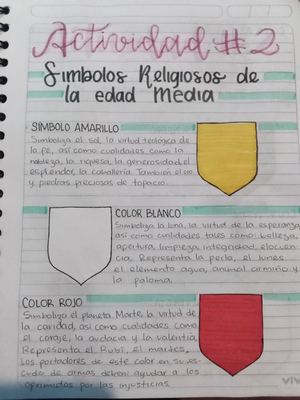 Actividad #2
Simbolos Religiosos de
la edad Media
SÍMBOLO AMARILLO
Simboliza el sol, la virtud teologica de
la fe, así como cualidades como la
nobleza, la riquesa, la generosidad, el
esplendor, la caballeria. También el oro
y piedras preciosas de topacio.
COLOR BLANCO
Simboliza la luna, la virtud de la esperanza
así como cualidades tales como: belleza,
apertura, limpieza, integridad, elocuen-
cia. Representa la perla, el lunes
el elemento agua, animal armiño y
la paloma.
COLOR ROJO
Simboliza el planeta Marte, la virtud de
la caridad, así como cualidades como
el coraje, la audacia y la valentía.
Representa el Rubí, el martes,
los portadores de este color en su es-
cudo de armas deben ayudar a los
oprimidos por las injusticias.